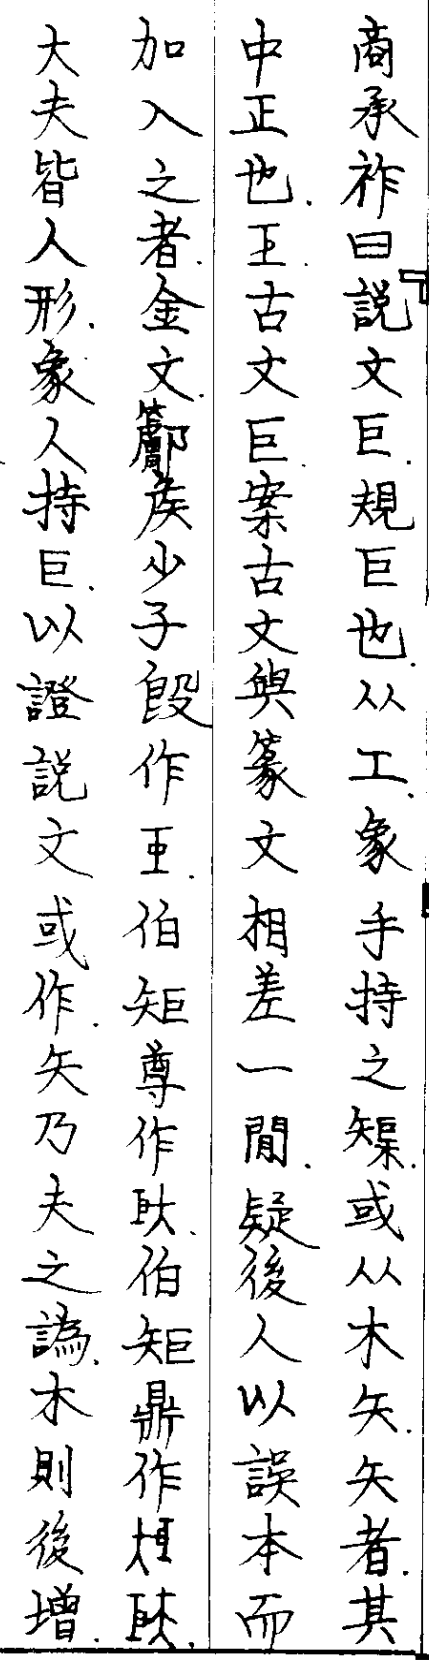 商承祚曰「説文巨.規巨也.从工.象手持之榘.或从木矢.矢者.其
中正也.王古文巨.案古文與篆文相差一間.疑後人以誤本而
加入之者.金文.鄘矦少子𣪘作王.伯矩尊作㠪.伯矩鼎作
大夫皆人形.象人持巨.以證説文或作.矢乃夫之譌.木則後增.